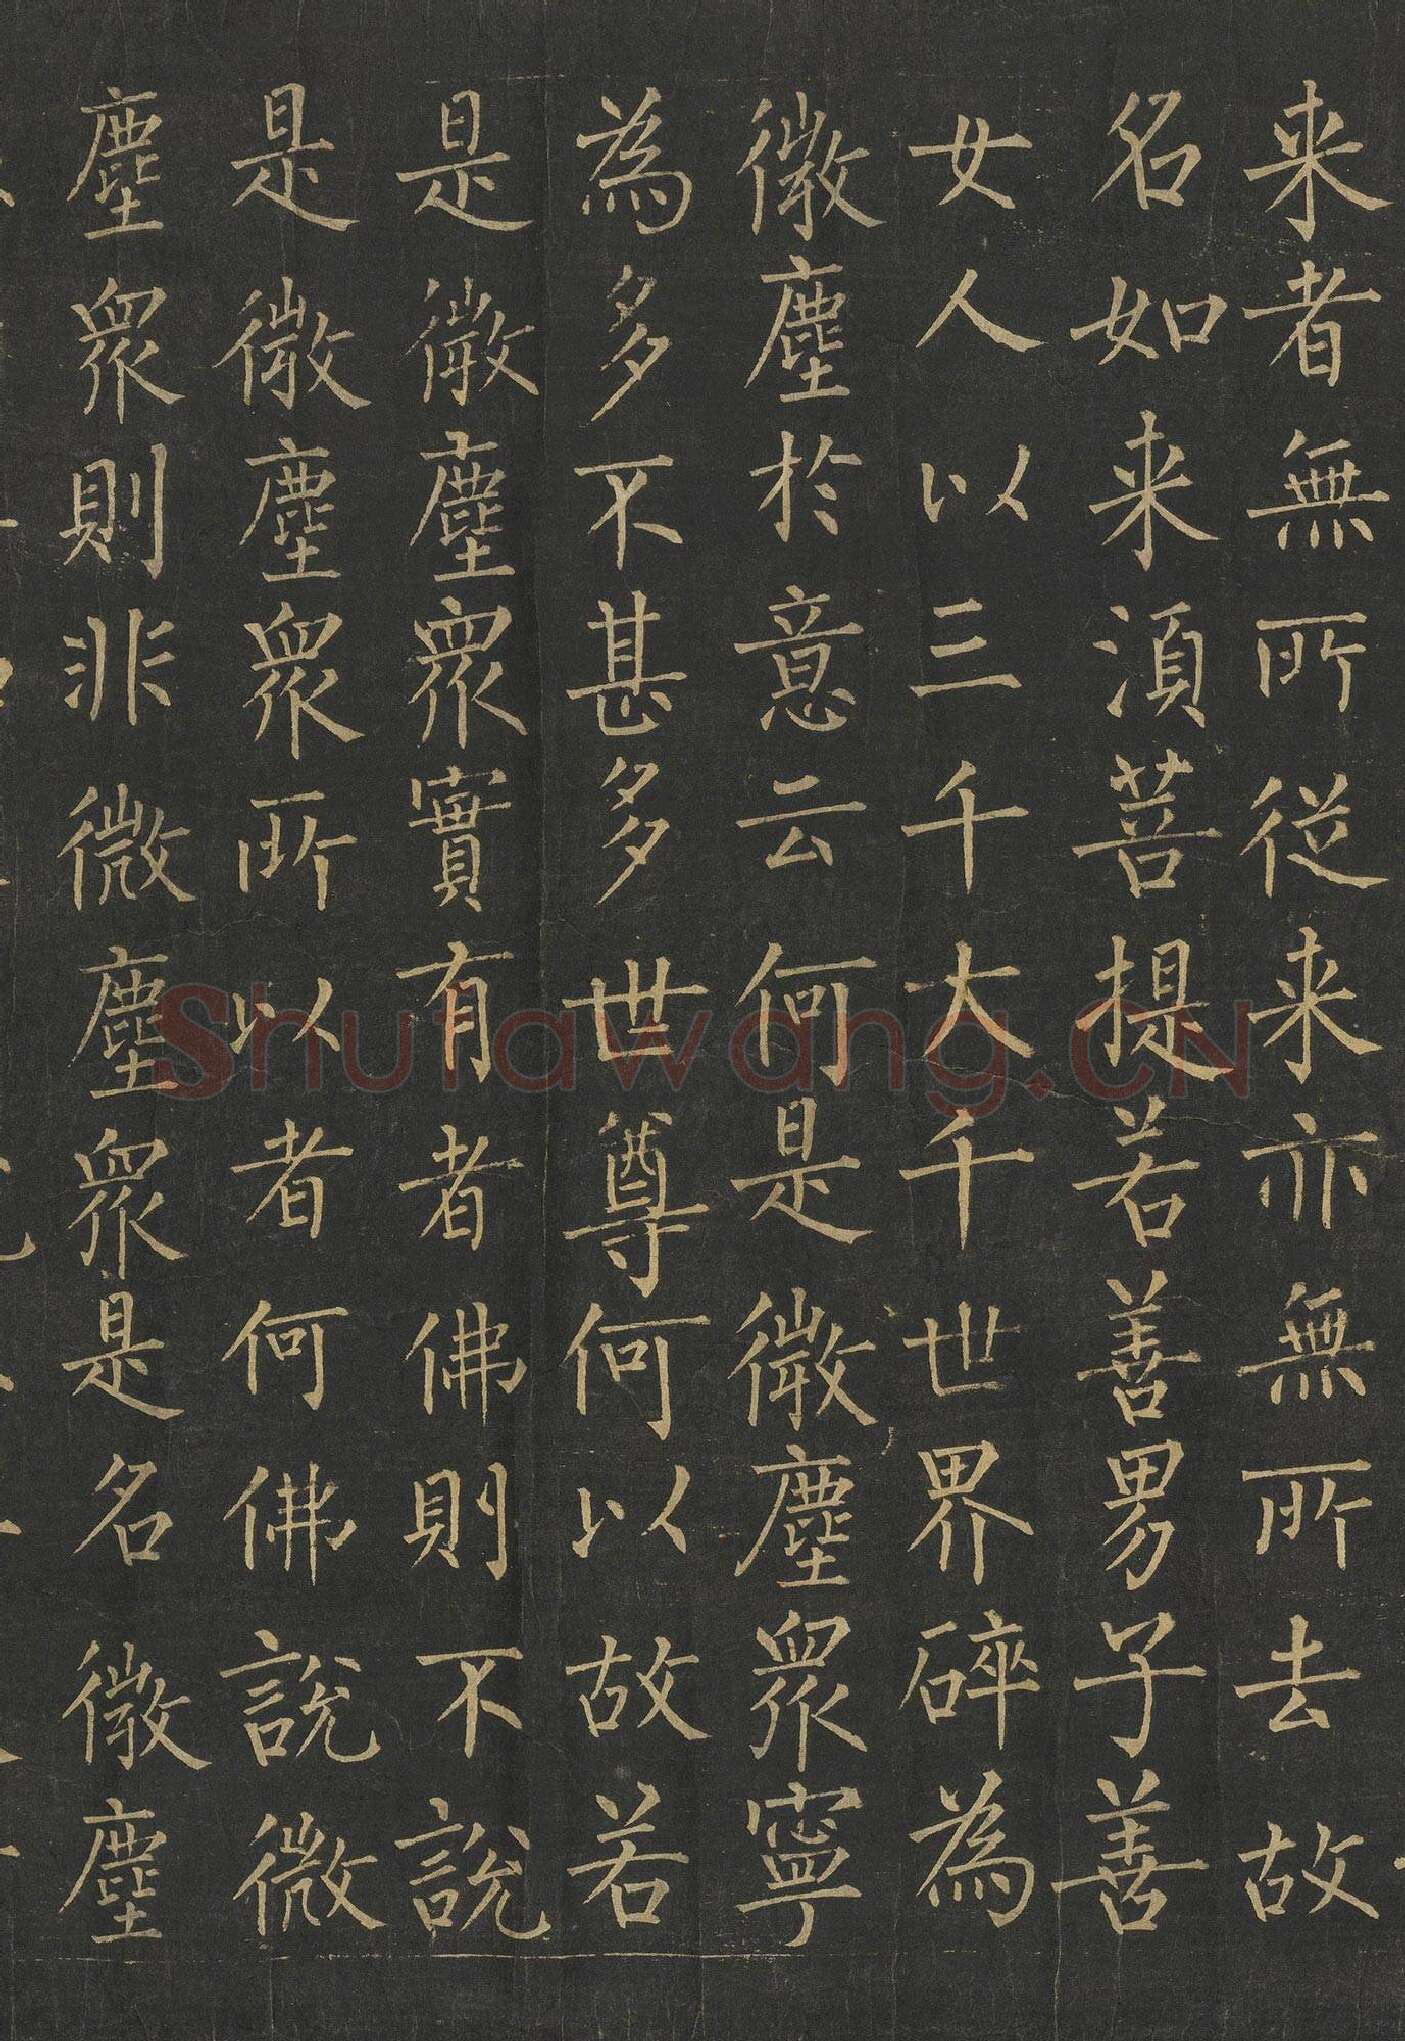 来者無所従来亦無所去故
名如来湏菩提若善男子善
女人以三千大千世界碎為
微塵於意云何是微塵眾寧
為多不甚多世尊何以故若
是微塵眾實有者佛則不說
是微塵眾所以者何佛說微
塵眾則非微塵眾是名微塵
Shufawang.CN